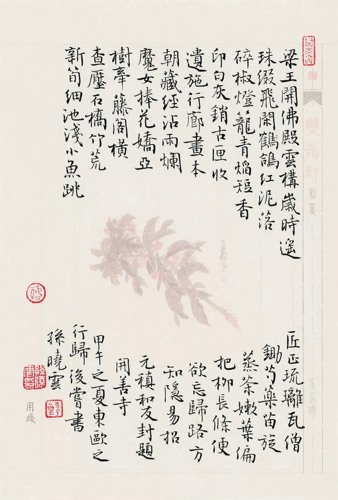 梁王開佛殿雲構歲時遥
珠缀飛閑鶴鴿红泥落
碎椒燈龍青焰短香
印白灰銷古匣收
遺施行廊畫本
朝藏经沾雨爛
魔女捧花嬌亞
樹牽藤阁橫
查壓石橋竹荒
新筍细池淺小魚跳
匠正琉璃瓦僧
鋤芍藥苗旋
蒸茶嫩葉偏
把柳長條便
欲忘歸路方
知隱易招
元稹和友封題
開善寺
甲午之夏東歐之
行歸後嘗書
孫曉雲